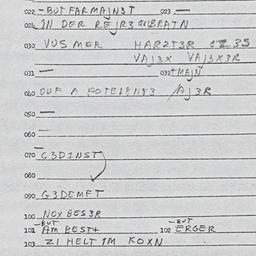 022 - BUT FARMAJNST 023 —
024 IN DER REJR3 GIBRATN
030 VOS MER HARZT3R IZ 3S
VAJ3X VAJ3X3R
031 — 032 + MAJN
040 OUF A FOTELEHN3 AJ3R
050 —
060 —
070 G3DINST
080
090 G3DEMFT
100 NOX BES3R
101 -BUT AM BEST+ 102 -BUT ERGER
103 ZI HELT IM KOXN